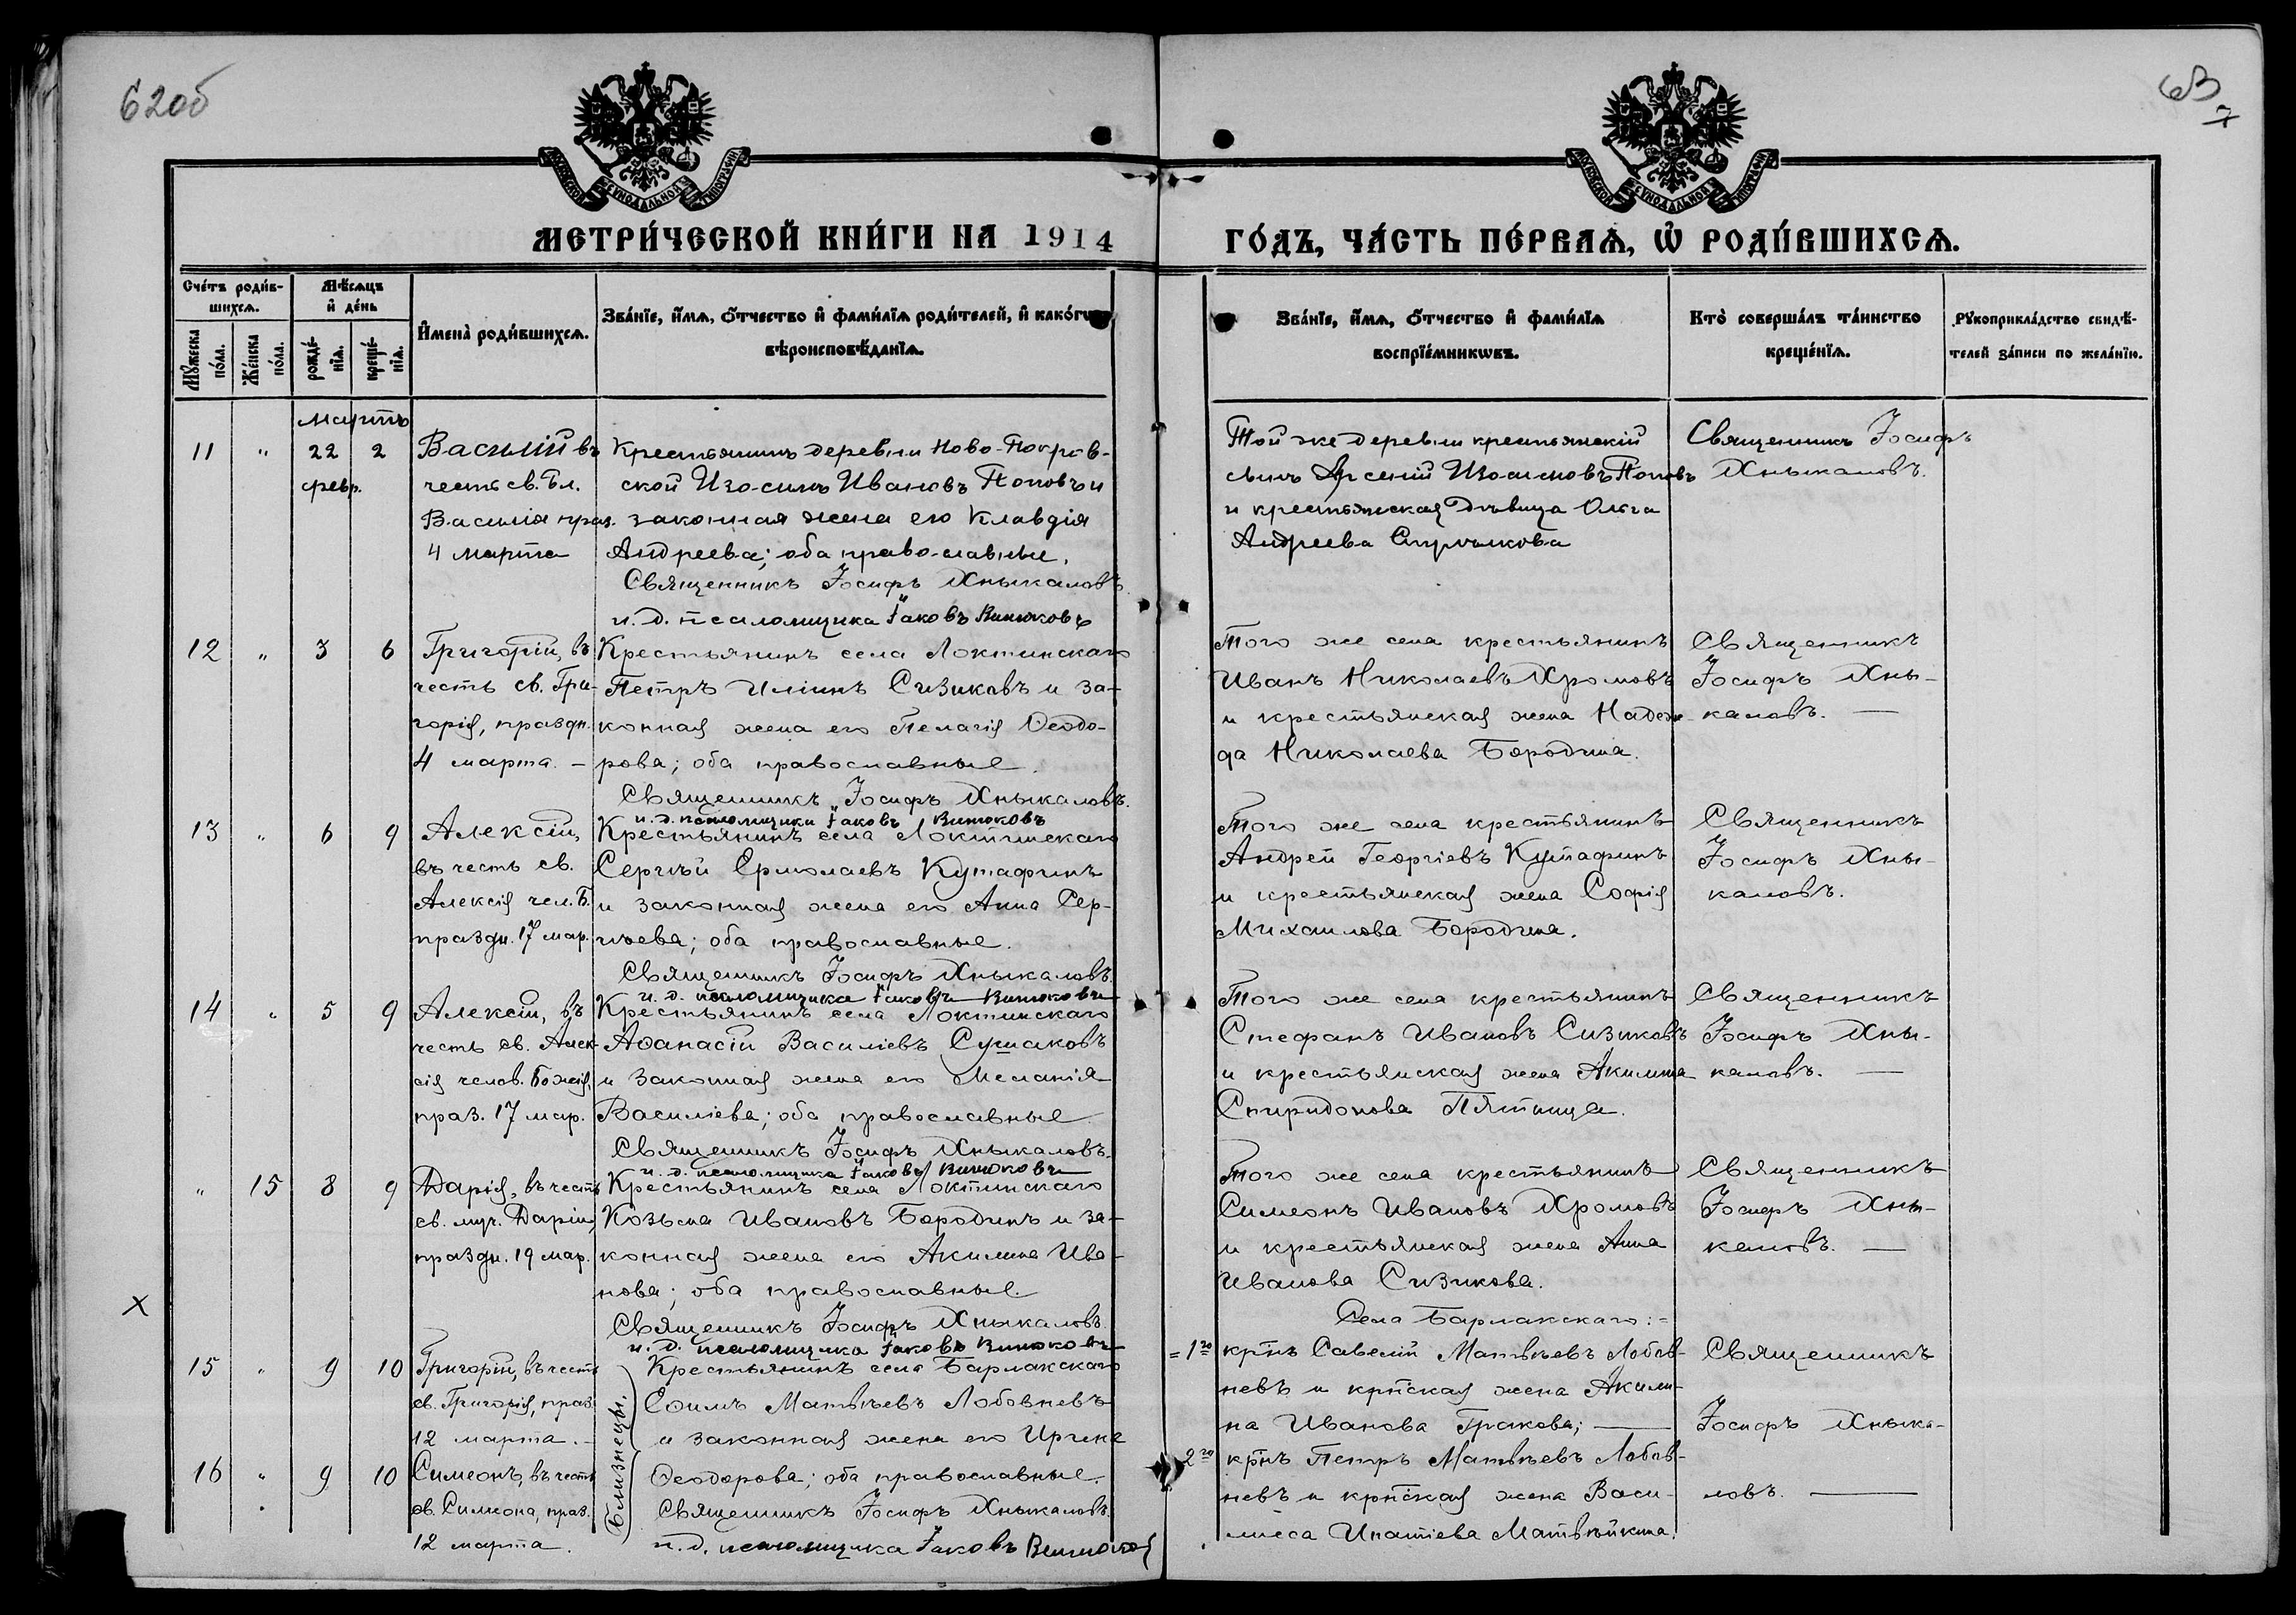 62об
63
7
МОСКОВСКОЙ СѴНОДАЛЬНОЙ ТИПОГРАФІИ
МОСКОВСКОЙ СѴНОДАЛЬНОЙ ТИПОГРАФІИ
МЕТРИ́ЧЕСКОЙ КНИ́ГИ НА 1914
ГО́ДЪ, ЧА́СТЬ ПЕ́РВАѦ, Ѡ҆ РОДИ́ВШИХСѦ.
Сче́тъ роди́в-
шихсѧ.
Мꙋ́жеска
по́ла.
Же́нска
по́ла.
Мѣ́сѧцъ
и҆ де́нь
рожде́-
нїѧ.
креще́-
нїѧ.
И҆мена̀ роди́вшихсѧ.
Зва́нїе, и҆́мѧ, ѻ҆́тчество и҆ фами́лїѧ роди́телей, и҆ како́гѡ
вѣроисповѣ́данїѧ.
Зва́нїе, и҆́мѧ, ѻ҆́тчество и҆ фами́лїѧ
воспрїе́мникѡвъ.
Кто̀ соверша́лъ та́инство
креще́нїѧ.
Рꙋкоприкла́дство свидѣ́-
телей за́писи по жела́нїю.
мартъ
11 " 22 2
февр.
Василій въ
честь св. бл.
Василія праз.
4 марта
Крестьянинъ деревни Ново-Покров-
ской Изосимъ Ивановъ Поповъ и
законная жена его Клавдія
Андреева; оба православные.
Священникъ Іосифъ Хныкаловъ.
и. д. псаломщика Іаковъ Винюковъ
Той же деревни крестьянскій
сынъ Арсеній Изосимовъ Поповъ
и крестьянская дѣвица Ольга
Андреева
Священникъ Іосифъ
Хныкаловъ.
12 " 3 6
Григорій, въ
честь св. Гри-
горія, праздн.
4 марта. -
Крестьянинъ села Локтинскаго
Петръ Иліинъ Сизиковъ и за-
конная жена его Пелагія Ѳеодо-
рова; оба православные.
Священникъ Іосифъ Хныкаловъ.
и. д. псаломщика Іаковъ Винюковъ
Того же села крестьянинъ
Иванъ Николаевъ Хромовъ
и крестьянская жена Надеж-
да Николаева Бородина.
Священникъ
Іосифъ Хны-
каловъ. —
13 " 6 9
Алексій,
въ честь св.
Алексія чел. Б.
праздн. 17 мар.
Крестьянинъ села Локтинскаго
Сергѣй Ермолаевъ Кутафинъ
и законная жена его Анна Сер-
гѣева; оба православные.
Священникъ Іосифъ Хныкаловъ.
и. д. псаломщика Іаковъ Винюковъ
Того же села крестьянинъ
Андрей Георгіевъ Кутафинъ
и крестьянская жена Софія
Михаилова Бородина.
Священникъ
Іосифъ Хны-
каловъ.
14 " 5 9
Алексій, въ
честь св. Алек-
сія челов. Божія,
праз. 17 мар.
Крестьянинъ села Локтинскаго
Аѳанасій Василіевъ Сушаковъ
и законная жена его Меланія
Василіева; оба православные
Священникъ Іосифъ Хныкаловъ.
и. д. псаломщика Іаковъ Винюковъ
Того же села крестьянинъ
Стефанъ Ивановъ Сизиковъ
и крестьянская жена Акилина
Спиридонова Пятница.
Священникъ
Іосифъ Хны-
каловъ. —
" 15 8 9
Дарія, въ честь
св. муч. Даріи,
праздн. 19 мар.
Крестьянинъ села Локтинскаго
Козьма Ивановъ Бородинъ и за-
конная жена его Акилина Ива-
нова; оба православные.
Священникъ Іосифъ Хныкаловъ.
и. д. псаломщика Іаковъ Винюковъ
Того же села крестьянинъ
Симеонъ Ивановъ Хромовъ
и крестьянская жена Анна
Иванова Сизикова.
Священникъ
Іосифъ Хны-
каловъ. —
х
15 " 9 10
Григорій, въ честь
св. Григорія, праз.
12 марта. -
16 " 9 10
Симеонъ, въ честь
св. Симеона, праз.
12 марта.
Близнецы.
Крестьянинъ села Барлакскаго
Ѳоимъ Матвѣевъ Лобовневъ
и законная жена его Ирина
Ѳеодорова; оба православные.
Священникъ Іосифъ Хныкаловъ.
и. д. псаломщика Іаковъ Винюковъ
Села Барлакскаго: -
= 1го крнъ Савелій Матвѣевъ Лобов-
невъ и крпская жена Акили-
на Иванова Гракова; —
2го крнъ Петръ Матвѣевъ Лобов-
невъ и крпская жена Васи-
лисса Ипатіева Матвѣйкина.
Священникъ
Іосифъ Хныка-
ловъ. —